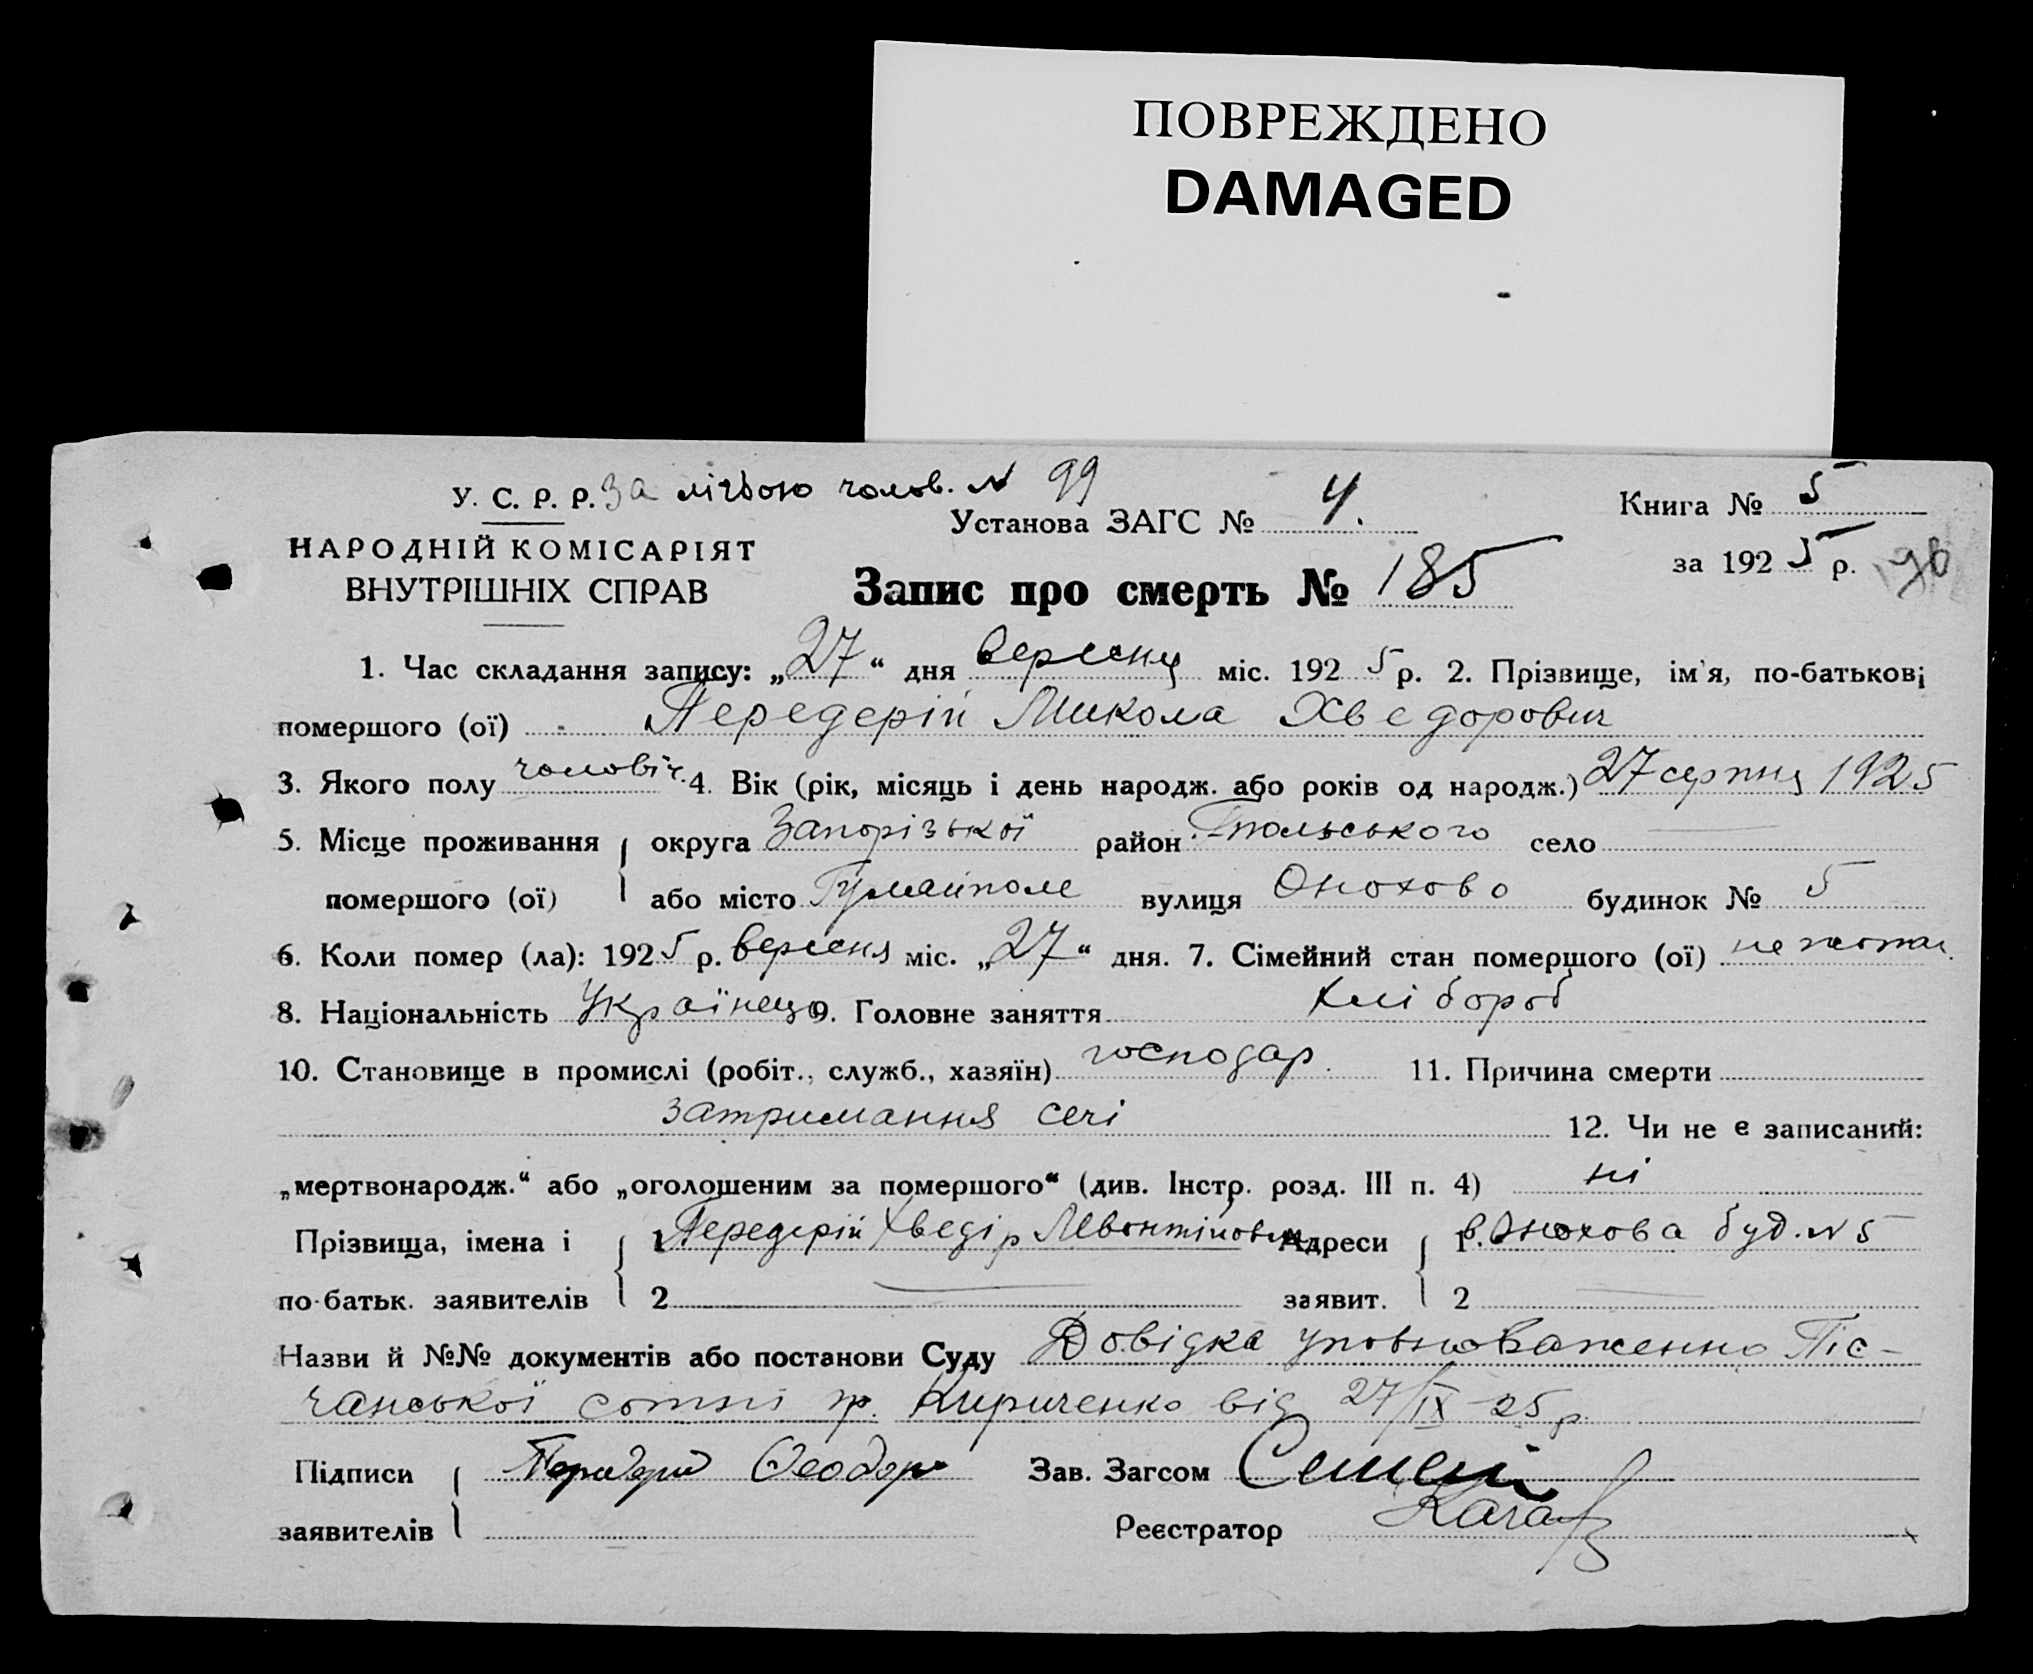 ПОВРЕЖДЕНО
DAMAGED
У. С. Р. Р. За лічбою чолов. N 99
Установа ЗАГС № 4.
Книга № 5
НАРОДНІЙ КОМІСАРІЯТ
ВНУТРІШНІХ СПРАВ
за 1925 р. 90
Запис про смерть № 185
1. Час складання запису: „27“ дня вересня міс. 1925 р. 2. Прізвище, ім'я, по-батькові
помершого (ої) Передерій Микола Хведорович
3. Якого полу чоловіч. 4. Вік (рік, місяць і день народж. або років од народж.) 27 серпня 1925
5. Місце проживання округа Запорізької район село
помершого (ої) або місто Гуляйполе вулиця Онохово будинок № 5
6. Коли помер (ла): 1925 р. вересня міс. „27“ дня. 7. Сімейний стан помершого (ої) не жонат.
8. Національність Українець 9. Головне заняття хлібороб
10. Становище в промислі (робіт., служб., хазяїн) господар. 11. Причина смерти
затримання сечі 12. Чи не є записаний:
„мертвонародж.“ або „оголошеним за помершого“ (див. Інстр. розд. III п. 4) ні
Прізвища, імена і 1 Передерій Хведір Левонтійович Адреси 1 в. Онохова буд. N 5
по-батьк. заявителів 2 заявит. 2
Назви й №№ документів або постанови Суду Довідка уповноваженно Піс-
чанської сотні гр. Кириченко від 27/IX-25 р.
Підписи Передерий Феодор Зав. Загсом
заявителів Реєстратор